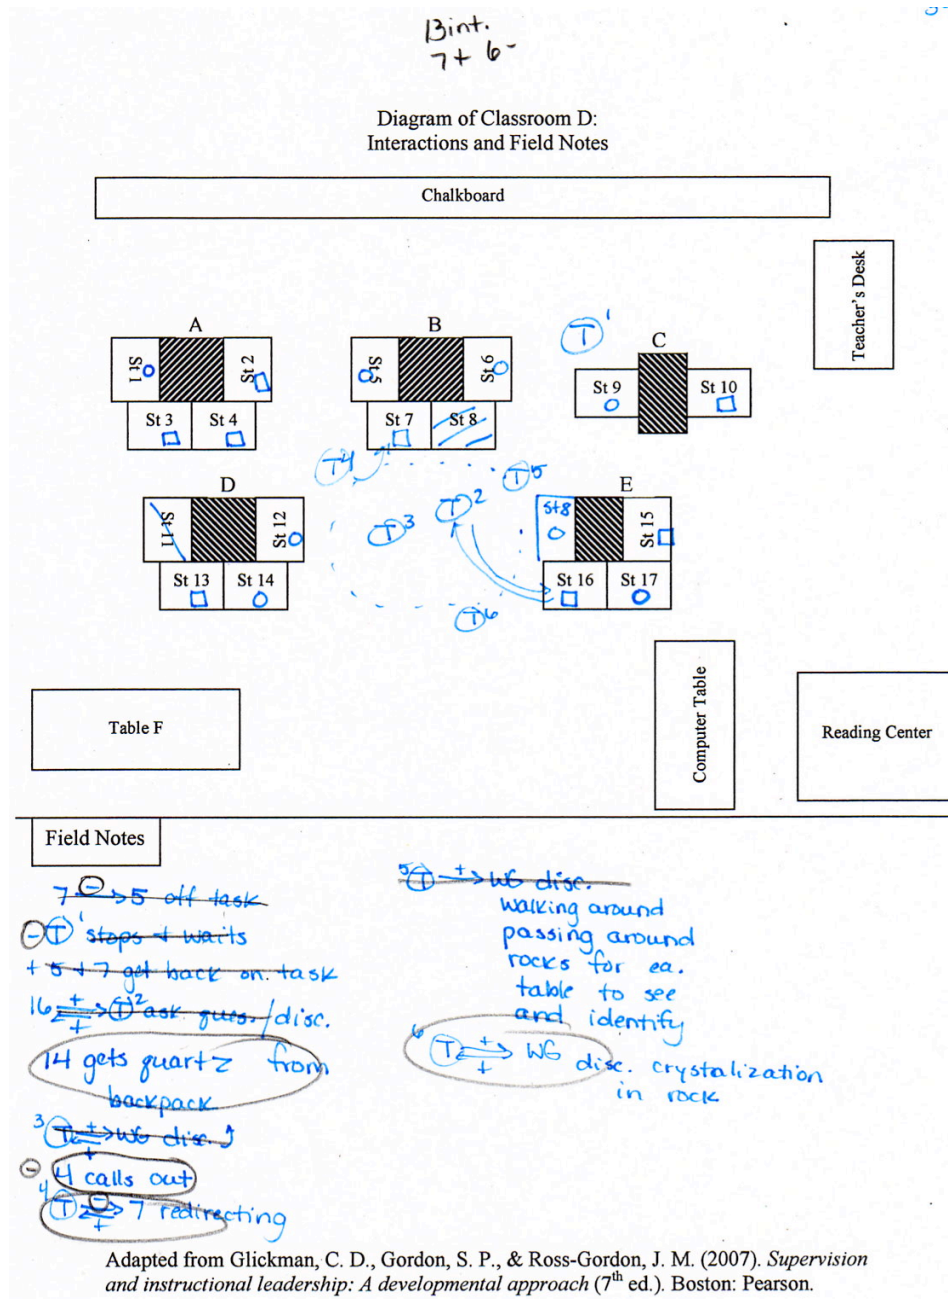 13 int.
7+ 6-
Diagram of Classroom D:
Interactions and Field Notes
Chalkboard
Teacher's Desk
A
St 1
St 2
St 3 St 4
B
St 5
St 6
St 7 St 8
T 1
C
St 9 St 10
T 4
T 5
D
St 11
St 12
St 13 St 14
T 3
T 2
T 6
E
St 8
St 15
St 16 St 17
Table F
Computer Table
Reading Center
Field Notes
7 - → 5 off task
- T 1 stops + waits
+ 5 + 7 get back on task
16 + ⇄ + T 2 ask ques./disc.
14 gets quartz from
backpack
3 T + ⇄ + WG disc.
- 4 calls out
4 T - ⇄ + 7 redirecting
5 T + → WG disc.
walking around
passing around
rocks for ea.
table to see
and identify
6 T + ⇄ + WG
disc. crystalization
in rock
Adapted from Glickman, C. D., Gordon, S. P., & Ross-Gordon, J. M. (2007). Supervision
and instructional leadership: A developmental approach (7th ed.). Boston: Pearson.